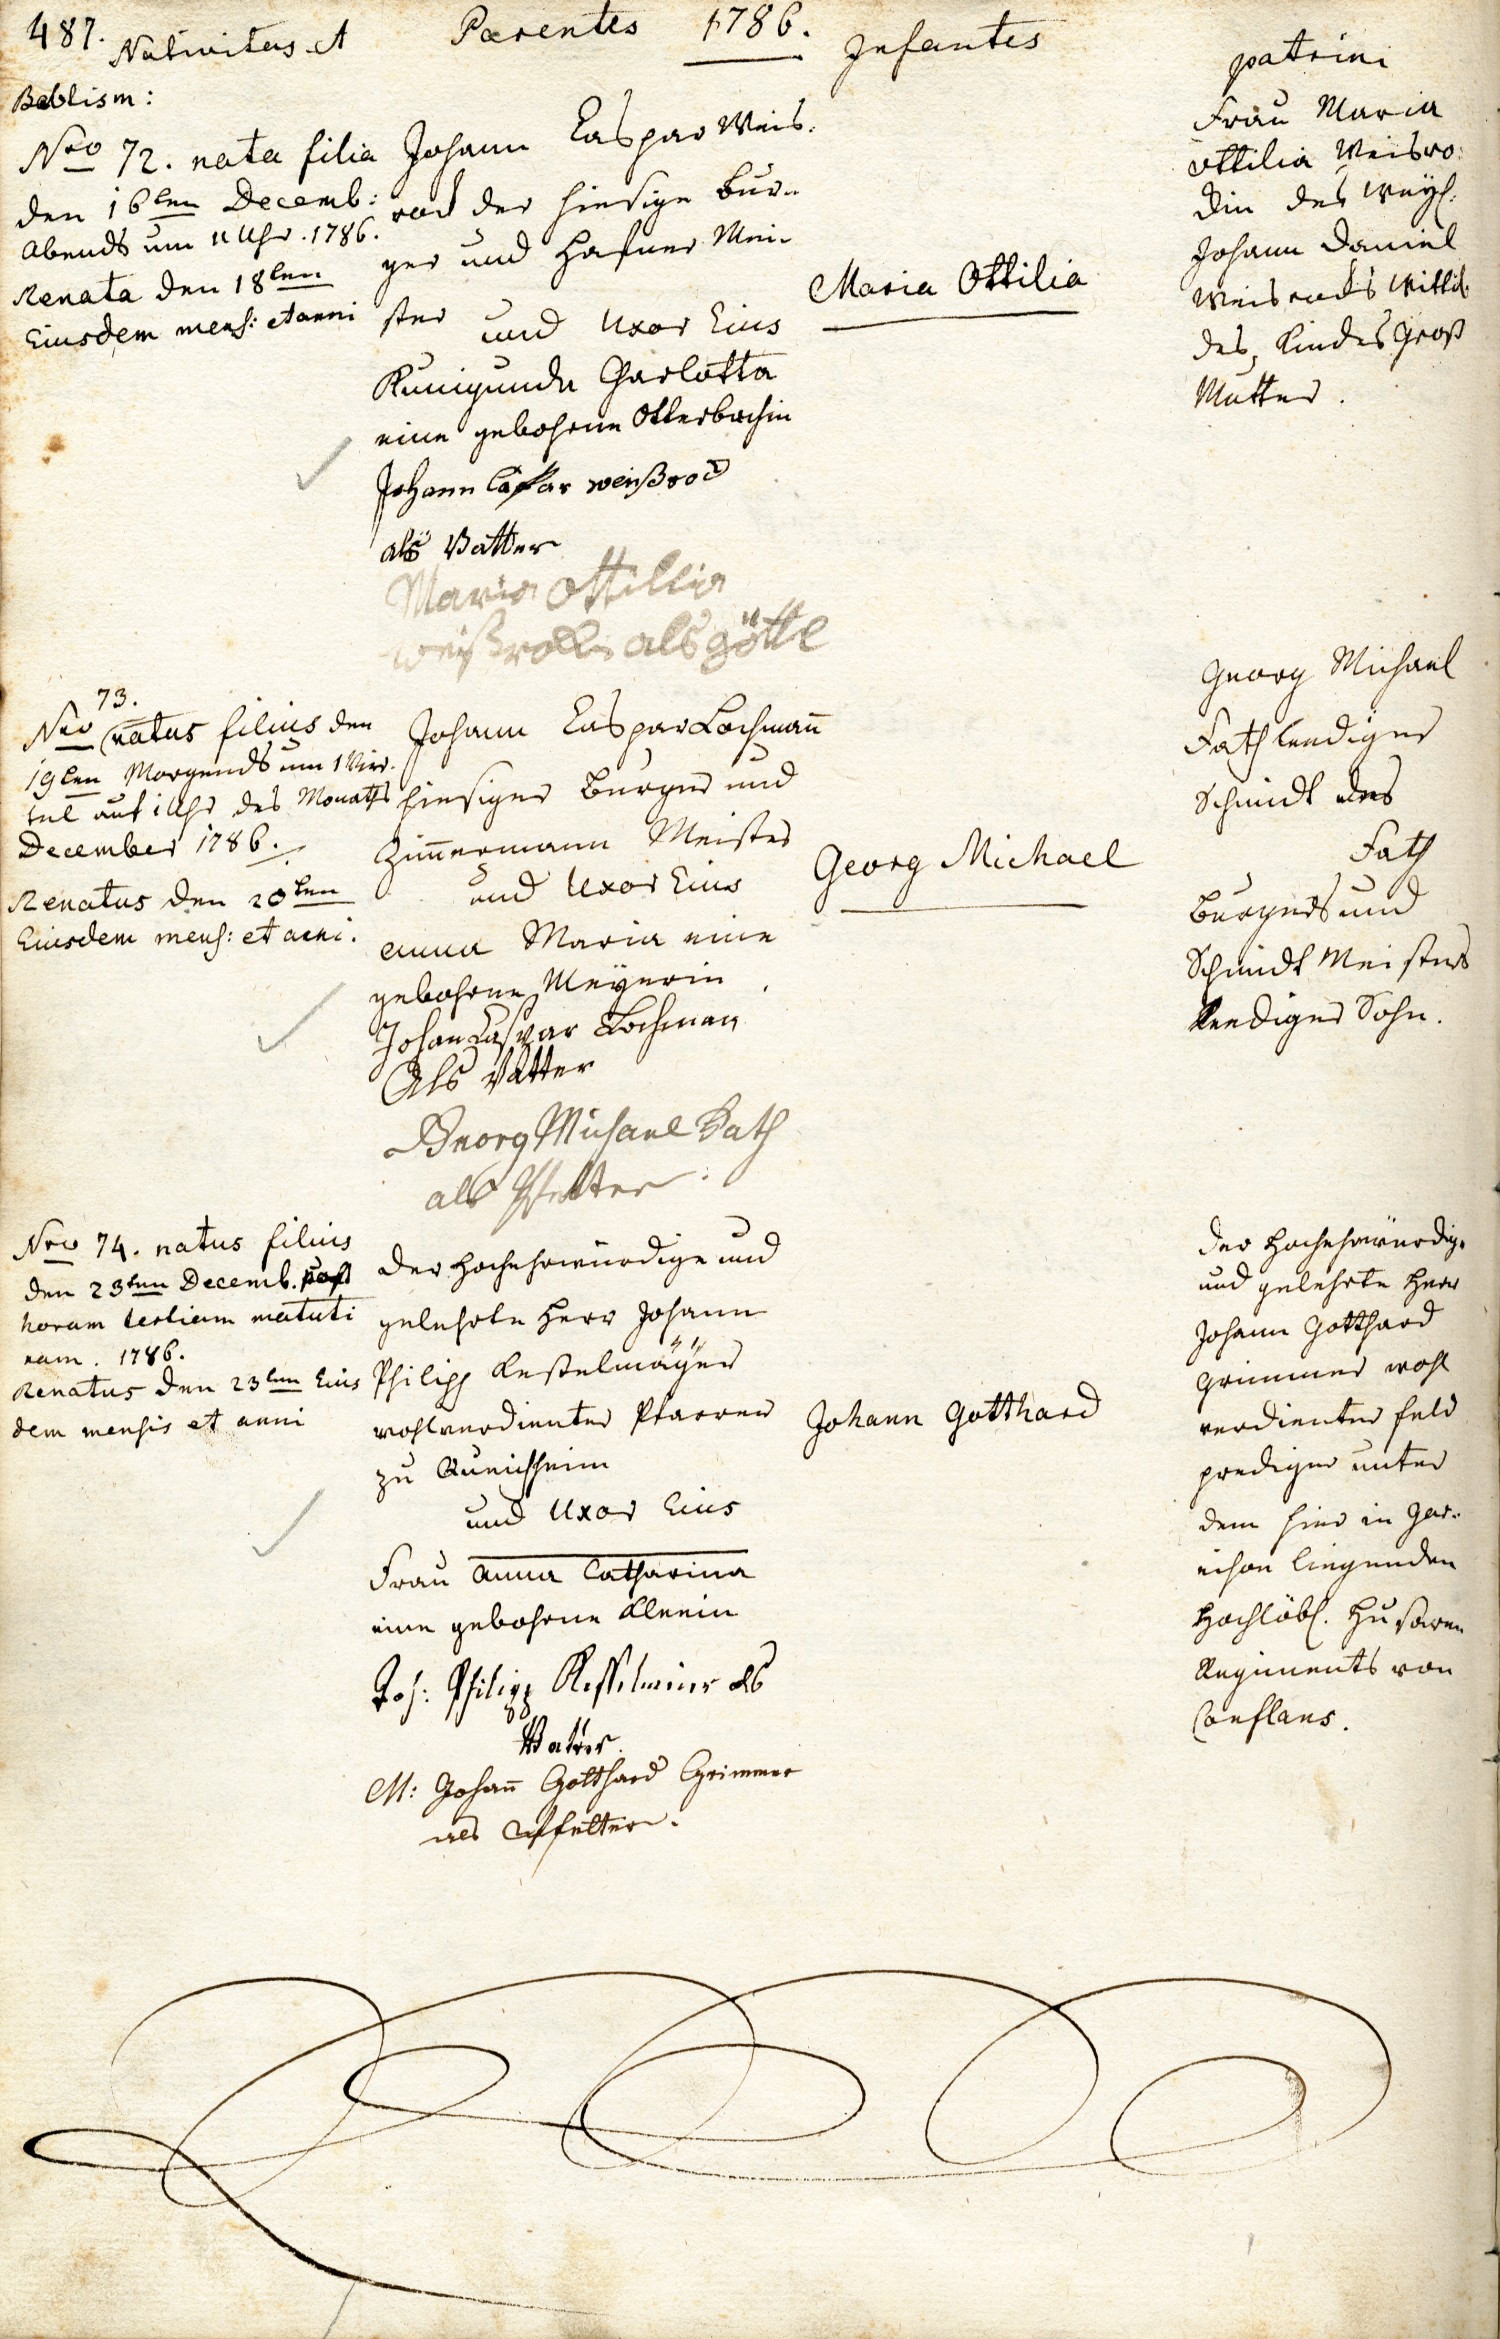 487. Nativitas et Parentes 1786. Infantes patrini
Babtism:
Nro 72. nata filia
den 16ten Decemb:
Abends um 11 Uhr. 1786.
Renata den 18ten
Eiusdem mens: et anni
Johann Caspar Weis.
rod der hiesige Bur-
ger und Hafner Mei-
ster und Uxor Eius
Kunigunda Charlotta
eine gebohrne Otterbachin
Johann Caspar weißrod
als Vatter
Maria Ottillia
weißrodin als götte
Maria Ottilia
Frau Maria
Ottilia Weisro:
din des weyl.
Johann Daniel
Weisrods Wittib
des Kindes Groß
Mutter.
73.
Nro natus filius den
19ten Morgends um 1 Vier-
tel auf 1 Uhr des Monaths
December 1786.
Renatus den 20ten
Eiusdem mens: et anni.
Johann Caspar Lochmann
hiesiger Burger und
Zimmermann Meister
und Uxor Eius
Anna Maria eine
gebohrne Meyerin
Johan Caspar Lochman
Als Vatter
Georg Michael Fath
als Pfetter.
Georg Michael
Georg Michael
Fath leediger
Schmidt des
Fath
Burgers und
Schmidt Meisters
leediger Sohn.
Nro 74. natus filius
den 23ten Decemb. post
horam tertiam matuti
nam. 1786.
Renatus den 23ten Eius
dem mensis et anni
der Hochehrwürdige und
gelehrte Herr Johann
Philipp Kestelmäÿer
wohlverdienter Pfarrer
zu Queichheim
und Uxor Eius
Frau Anna Catharina
eine gebohrne Kleein
Joh: Philipp Kesselmeier als
Vater.
M: Johann Gotthard Grimmer
als Pfetter.
Johann Gotthard
der Hochehrwürdig.
und gelehrte Herr
Johann Gotthard
Grimmer wohl
verdienter feld
prediger unter
dem hier in Gar-
nison liegenden
Hochlöbl. Husaren
Regiments von
Conflans.